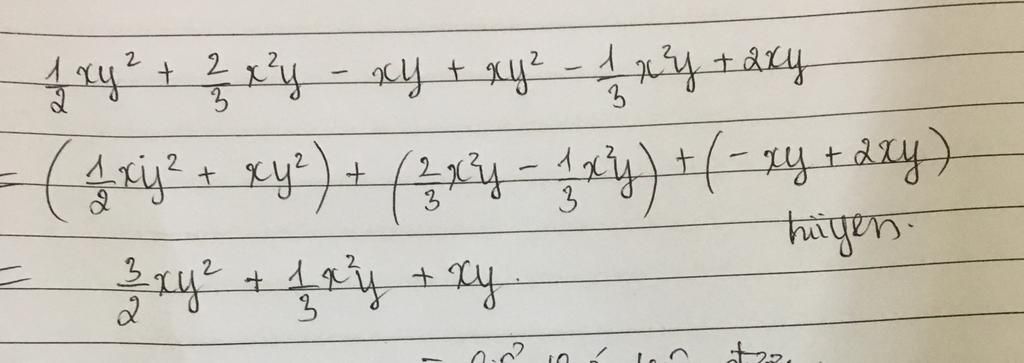 1/2 xy² + 2/3 x²y - xy + xy² - 1/3 x²y + 2xy
= (1/2 xy² + xy²) + (2/3 x²y - 1/3 x²y) + (- xy + 2xy)
= 3/2 xy² + 1/3 x²y + xy.